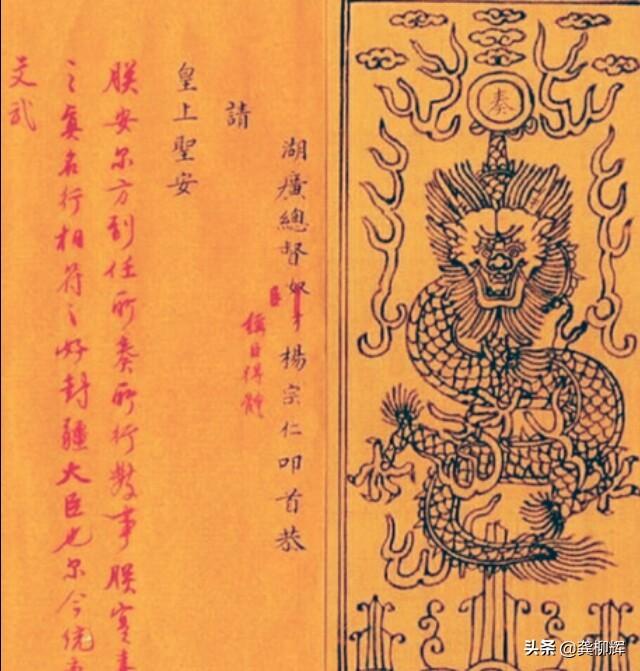 奏
湖廣總督奴才楊宗仁叩首恭
臣
稱臣得體
請
皇上聖安
朕安尔方到任所奏所行数事朕寔
之真名行相符之好封疆大臣也尔今统
文武
头条 @龚柳辉